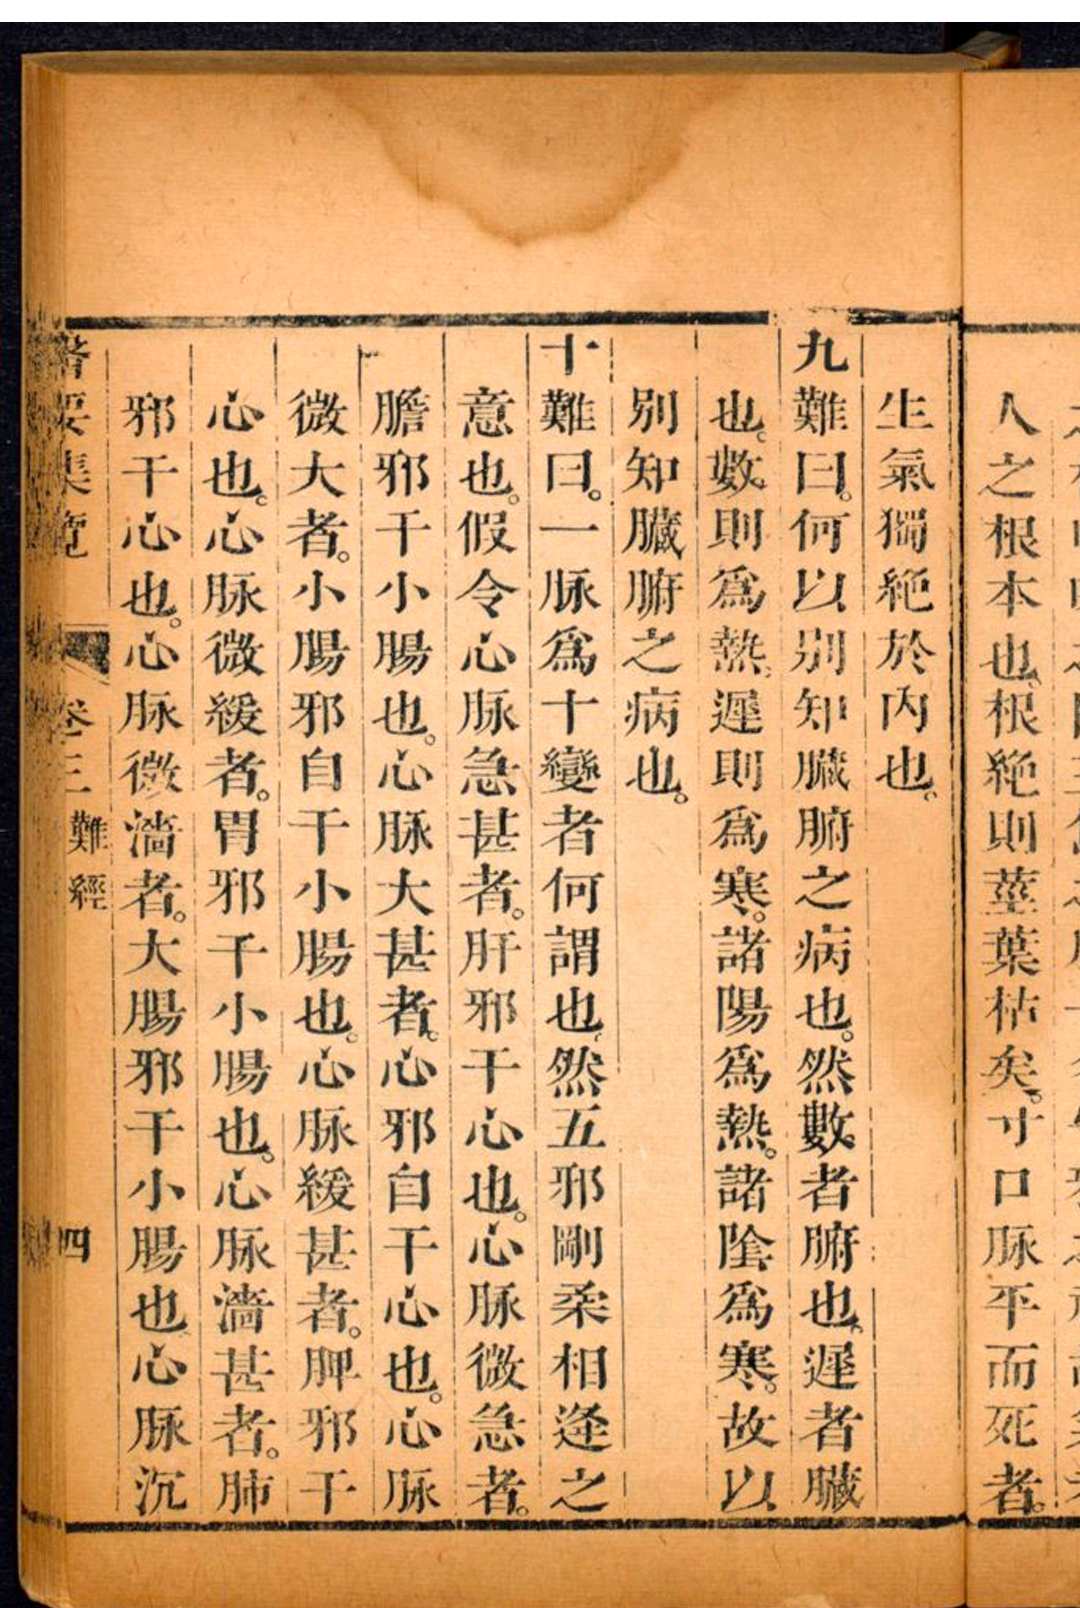 人之根本也。根絶則莖葉枯矣。寸口脉平而死者。
生氣獨絶於内也。
九難曰。何以别知臟腑之病也。然數者腑也。遲者臟
也。數則爲熱。遲則爲寒。諸陽爲熱。諸陰爲寒。故以
别知臟腑之病也。
十難曰。一脉爲十變者何謂也。然五邪剛柔相逢之
意也。假令心脉急甚者。肝邪干心也。心脉微急者。
膽邪干小腸也。心脉大甚者。心邪自干心也。心脉
微大者。小腸邪自干小腸也。心脉緩甚者。脾邪干
心也。心脉微緩者。胃邪干小腸也。心脉濇甚者。肺
邪干心也。心脉微濇者。大腸邪干小腸也心脉沉
要集覽 卷三 難經 四